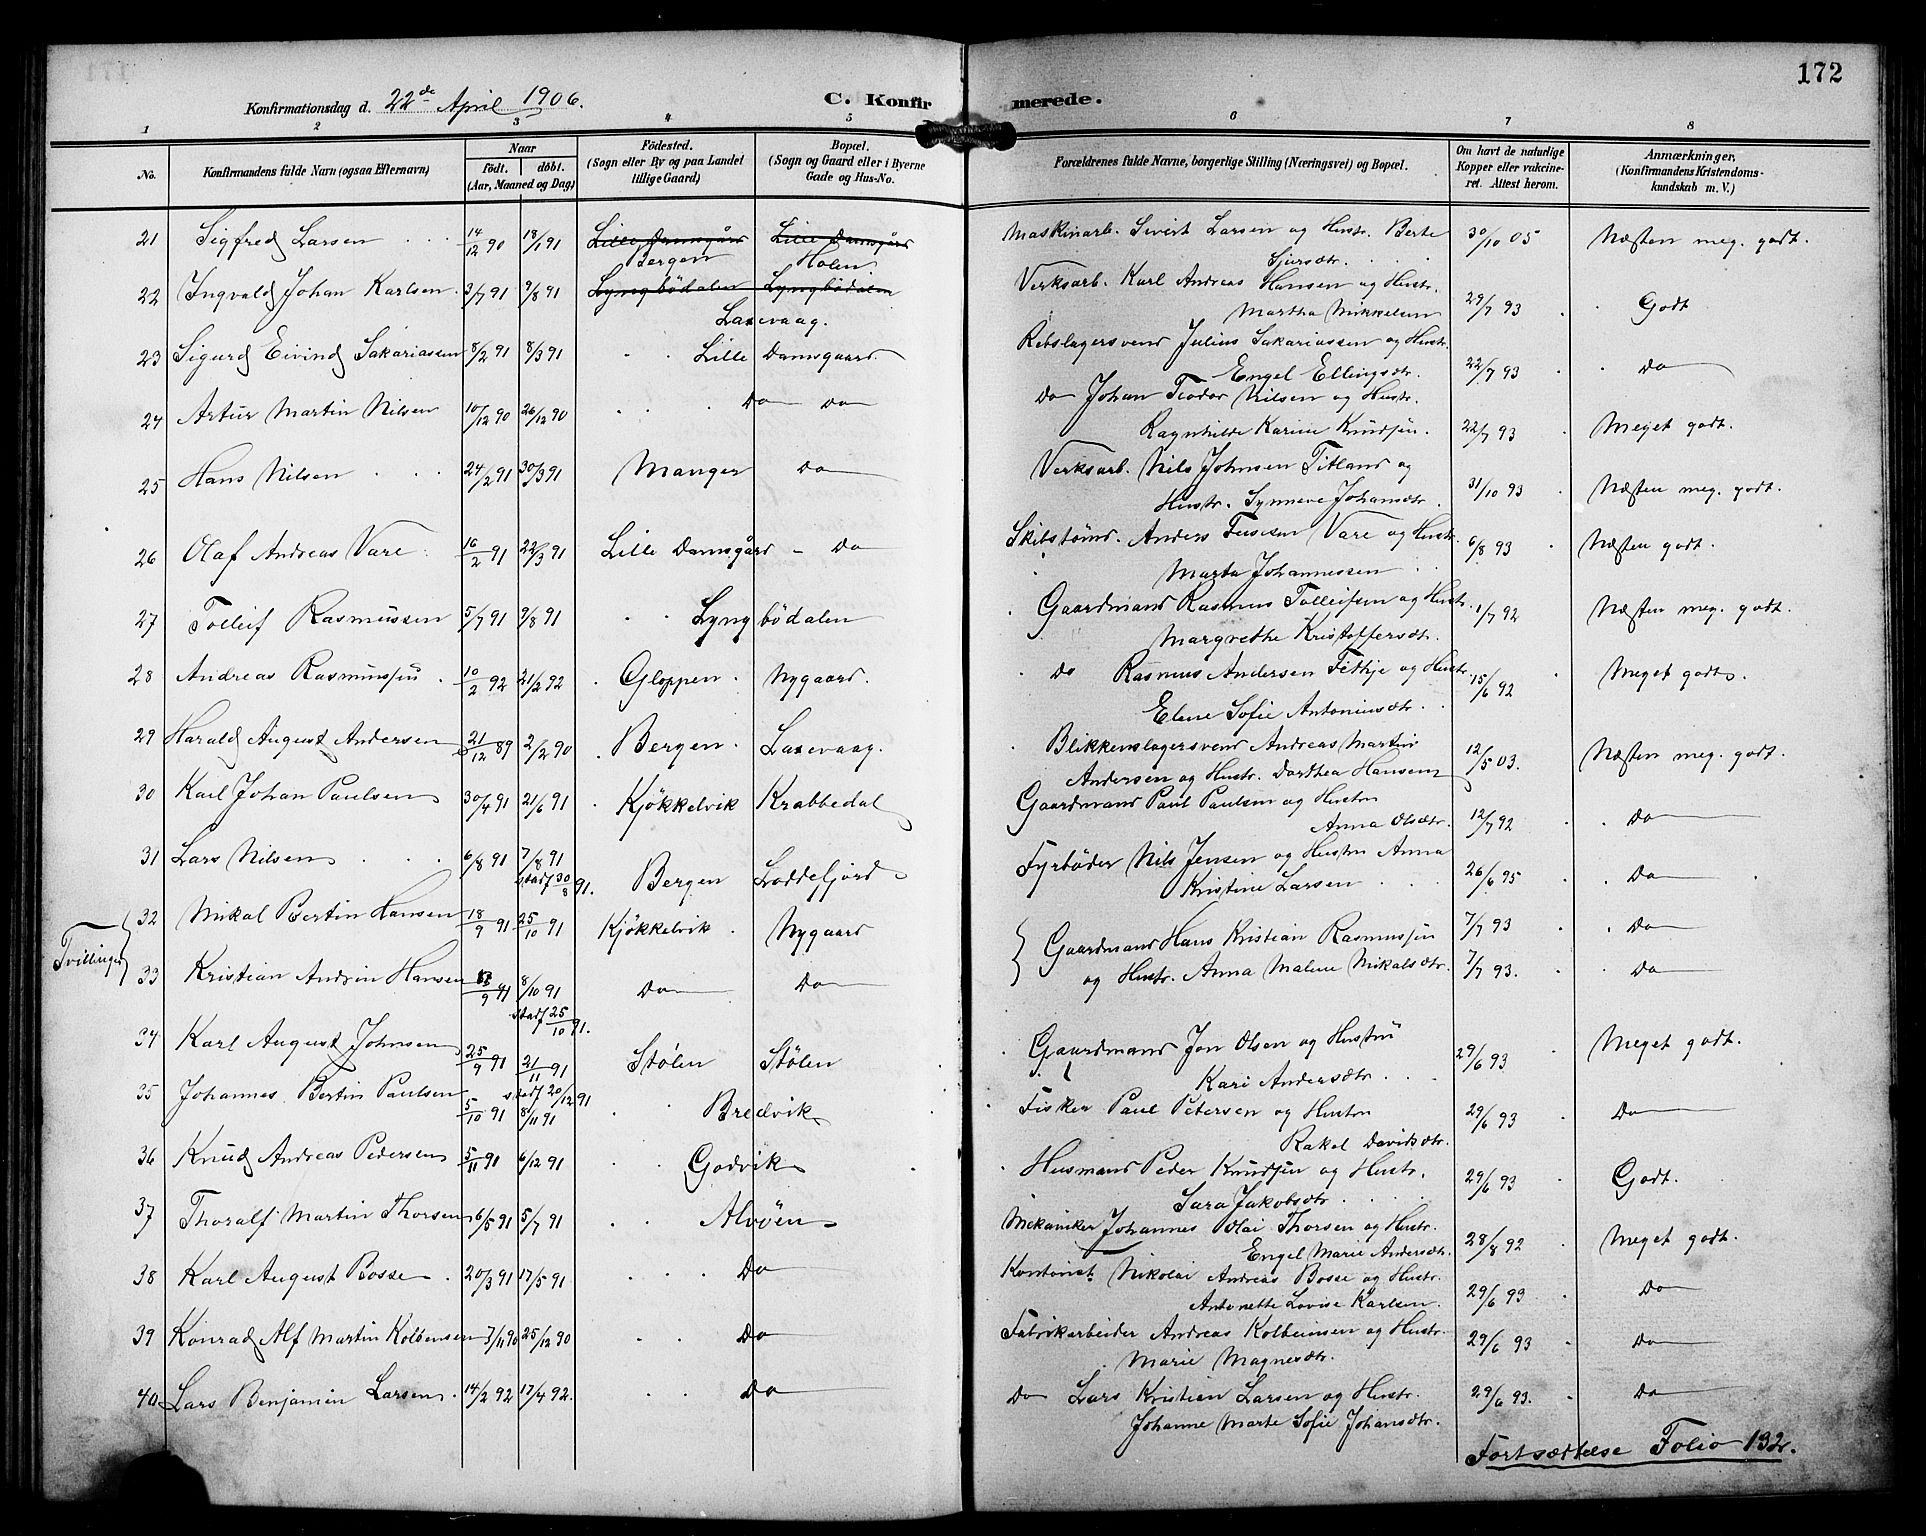 172
Konfirmationsdag d. 22de April 1906.
C. Konfirmerede.
1 2 3 4 5 6 7 8
No.
Konfirmandens fulde Navn (ogsaa Efternavn)
Naar
födt. döbt.
(Aar, Maaned og Dag)
Födested.
(Sogn eller By og paa Landet
tillige Gaard)
Bopæl.
(Sogn og Gaard eller i Byerne
Gade og Hus-No.
Forældrenes fulde Navne, borgerlige Stilling (Næringsvei) og Bopæl.
Om havt de naturlige
Kopper eller vakcine-
ret. Attest herom.
Anmærkninger,
(Konfirmandens Kristendoms-
kundskab m. V.)
21 Sigfred Larsen 14/12 90 18/1 91 Lille Damsgård Lille Damsgård Maskinarb. Sivert Larsen og Hustr. Berte 30/10 05 Næsten meg. godt.
Bergen Holen Sjursdtr.
22 Ingvald Johan Karlsen 3/7 91 9/8 91 Lyngbödalen Lyngbödalen Verksarb. Karl Andreas Hansen og Hustr.
Laxevaag. Martha Mikkelsen 29/7 93 Godt
23 Sigurd Eivind Sakariassen 8/2 91 8/3 91 Lille Damsgaard. Rebslagersvend Julius Sakariassen og Hustr.
Engel Ellingsdtr. 22/7 93 Do
24 Artur Martin Nilsen 10/12 90 26/12 90 Do Do Do Johan Teodor Nilsen og Hustr.
Ragnhilde Karine Knudsen. 22/7 93 Meget godt.
25 Hans Nilsen 24/2 91 30/3 91 Manger Do Verksarb. Nils Johnsen Titland og
Hustr. Synneve Johansdtr. 31/10 93 Næsten meg. godt.
26 Olaf Andreas Vare 16/2 91 22/3 91 Lille Damsgård - Do Skibstömr. Anders Vare og Hustr. 6/8 93 Næsten godt.
Marta Johannessen
27 Tolleif Rasmussen 5/7 91 9/8 91 Lyngbödalen Gaardmand Rasmus Tolleifsen og Hustr. 1/7 92 Næsten meg. godt.
Margrethe Kristoffersdtr.
28 Andreas Rasmussen 10/2 92 21/2 92 Gloppen Nygaard. Do Rasmus Andersen og Hustr. 15/6 92 Meget godt.
Elene Sofie Antoniusdtr.
29 Harald August Andersen 21/12 89 2/2 90 Bergen. Laxevaag. Blikkenslagersvend Andreas Martin
Andersen og Hustr. Dorthea Hansen 12/5 03. Næsten meg. godt.
30 Karl Johan Paulsen 30/4 91 21/6 91 Kjökkelvik Krabbedal Gaardmand Paul Paulsen og Hustru
Anna Olsdtr. 12/7 92 Do
31 Lars Nilsen 6/8 91 7/8 91 Bergen Loddefjord Fyrböder Nils Jensen og Hustru Anna
stadf 30/8 91. Kristine Larsen 26/6 95 Do
Tvillinger
32 Mikal Bertin Hansen 18/9 91 25/10 91 Kjökkelvik Nygaard Gaardmand Hans Kristian Rasmussen 7/7 93 Do
33 Kristian Andrin Hansen 18/9 91 8/10 91 Do Do og Hustr. Anna Malene Mikalsdtr. 7/7 93. Do
stadf 25/10 91.
34 Karl August Johnsen 25/9 91 21/11 91 Stölen Stölen Gaardmand Jon Olsen og Hustru 29/6 93 Meget godt.
stadf 20/12 91 Kari Andersdtr.
35 Johannes Bertin Paulsen 5/10 91 8/11 91 Bredvik Fisker Paul Petersen og Hustru 29/6 93 Do
Rakel Davidsdtr.
36 Knud Andreas Pedersen 5/11 91 6/12 91 Godvik Husmand Peder Knudsen og Hustr. 29/6 93 Godt.
Sara Jakobsdtr.
37 Thoralf Martin Thorsen 6/5 91 5/7 91 Alvöen Mekaniker Johannes Olai Thorsen og Hustr.
Engel Marie Andersdtr. 28/8 92 Meget godt.
38 Karl August Bosse 20/3 91 17/5 91 Do Kontorist Nikolai Andreas Bosse og Hustr.
Antonette Lovise Karlsen. 29/6 93 Do
39 Konrad Alf Martin Kolbensen 7/11 90 25/12 90 Do Fabrikarbeider Andreas Kolbeinsen og Hustr. 29/6 93 Do
Marie Magnesdtr.
40 Lars Benjamin Larsen. 14/2 92 17/4 92. Do Do Lars Kristian Larsen og Hustr. 29/6 93. Do
Johanne Marte Sofie Johansdtr.
Fortsættelse Folio 132.